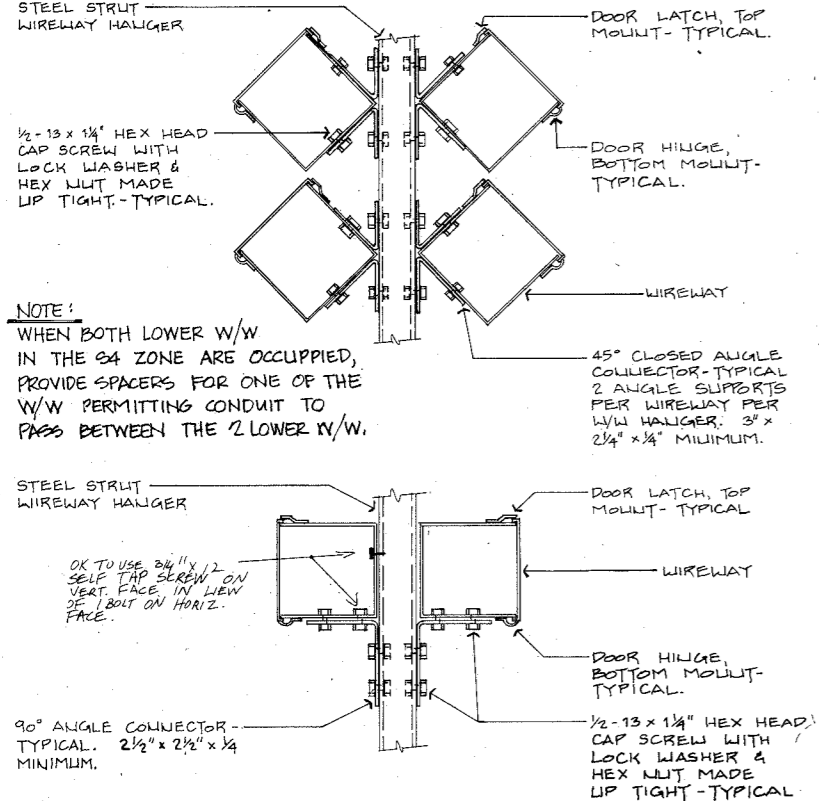 STEEL STRUT
WIREWAY HANGER
DOOR LATCH, TOP
MOUNT- TYPICAL.
1/2-13 x 1 1/4" HEX HEAD
CAP SCREW WITH
LOCK WASHER &
HEX NUT MADE
UP TIGHT.-TYPICAL.
DOOR HINGE,
BOTTOM MOUNT-
TYPICAL.
WIREWAY
NOTE:
WHEN BOTH LOWER W/W
IN THE S4 ZONE ARE OCCUPPIED,
PROVIDE SPACERS FOR ONE OF THE
W/W PERMITTING CONDUIT TO
PASS BETWEEN THE 2 LOWER W/W.
45° CLOSED ANGLE
CONNECTOR-TYPICAL
2 ANGLE SUPPORTS
PER WIREWAY PER
W/W HANGER. 3" x
2 1/4" x 1/4" MINIMUM.
STEEL STRUT
WIREWAY HANGER
DOOR LATCH, TOP
MOUNT- TYPICAL
OK TO USE 3/4" x 12
SELF TAP SCREW ON
VERT. FACE IN LIEW
OF 1 BOLT ON HORIZ.
FACE.
WIREWAY
DOOR HINGE,
BOTTOM MOUNT-
TYPICAL.
90° ANGLE CONNECTOR-
TYPICAL. 2 1/2" x 2 1/2" x 1/4
MINIMUM.
1/2-13 x 1 1/4" HEX HEAD
CAP SCREW WITH
LOCK WASHER &
HEX NUT MADE
UP TIGHT-TYPICAL